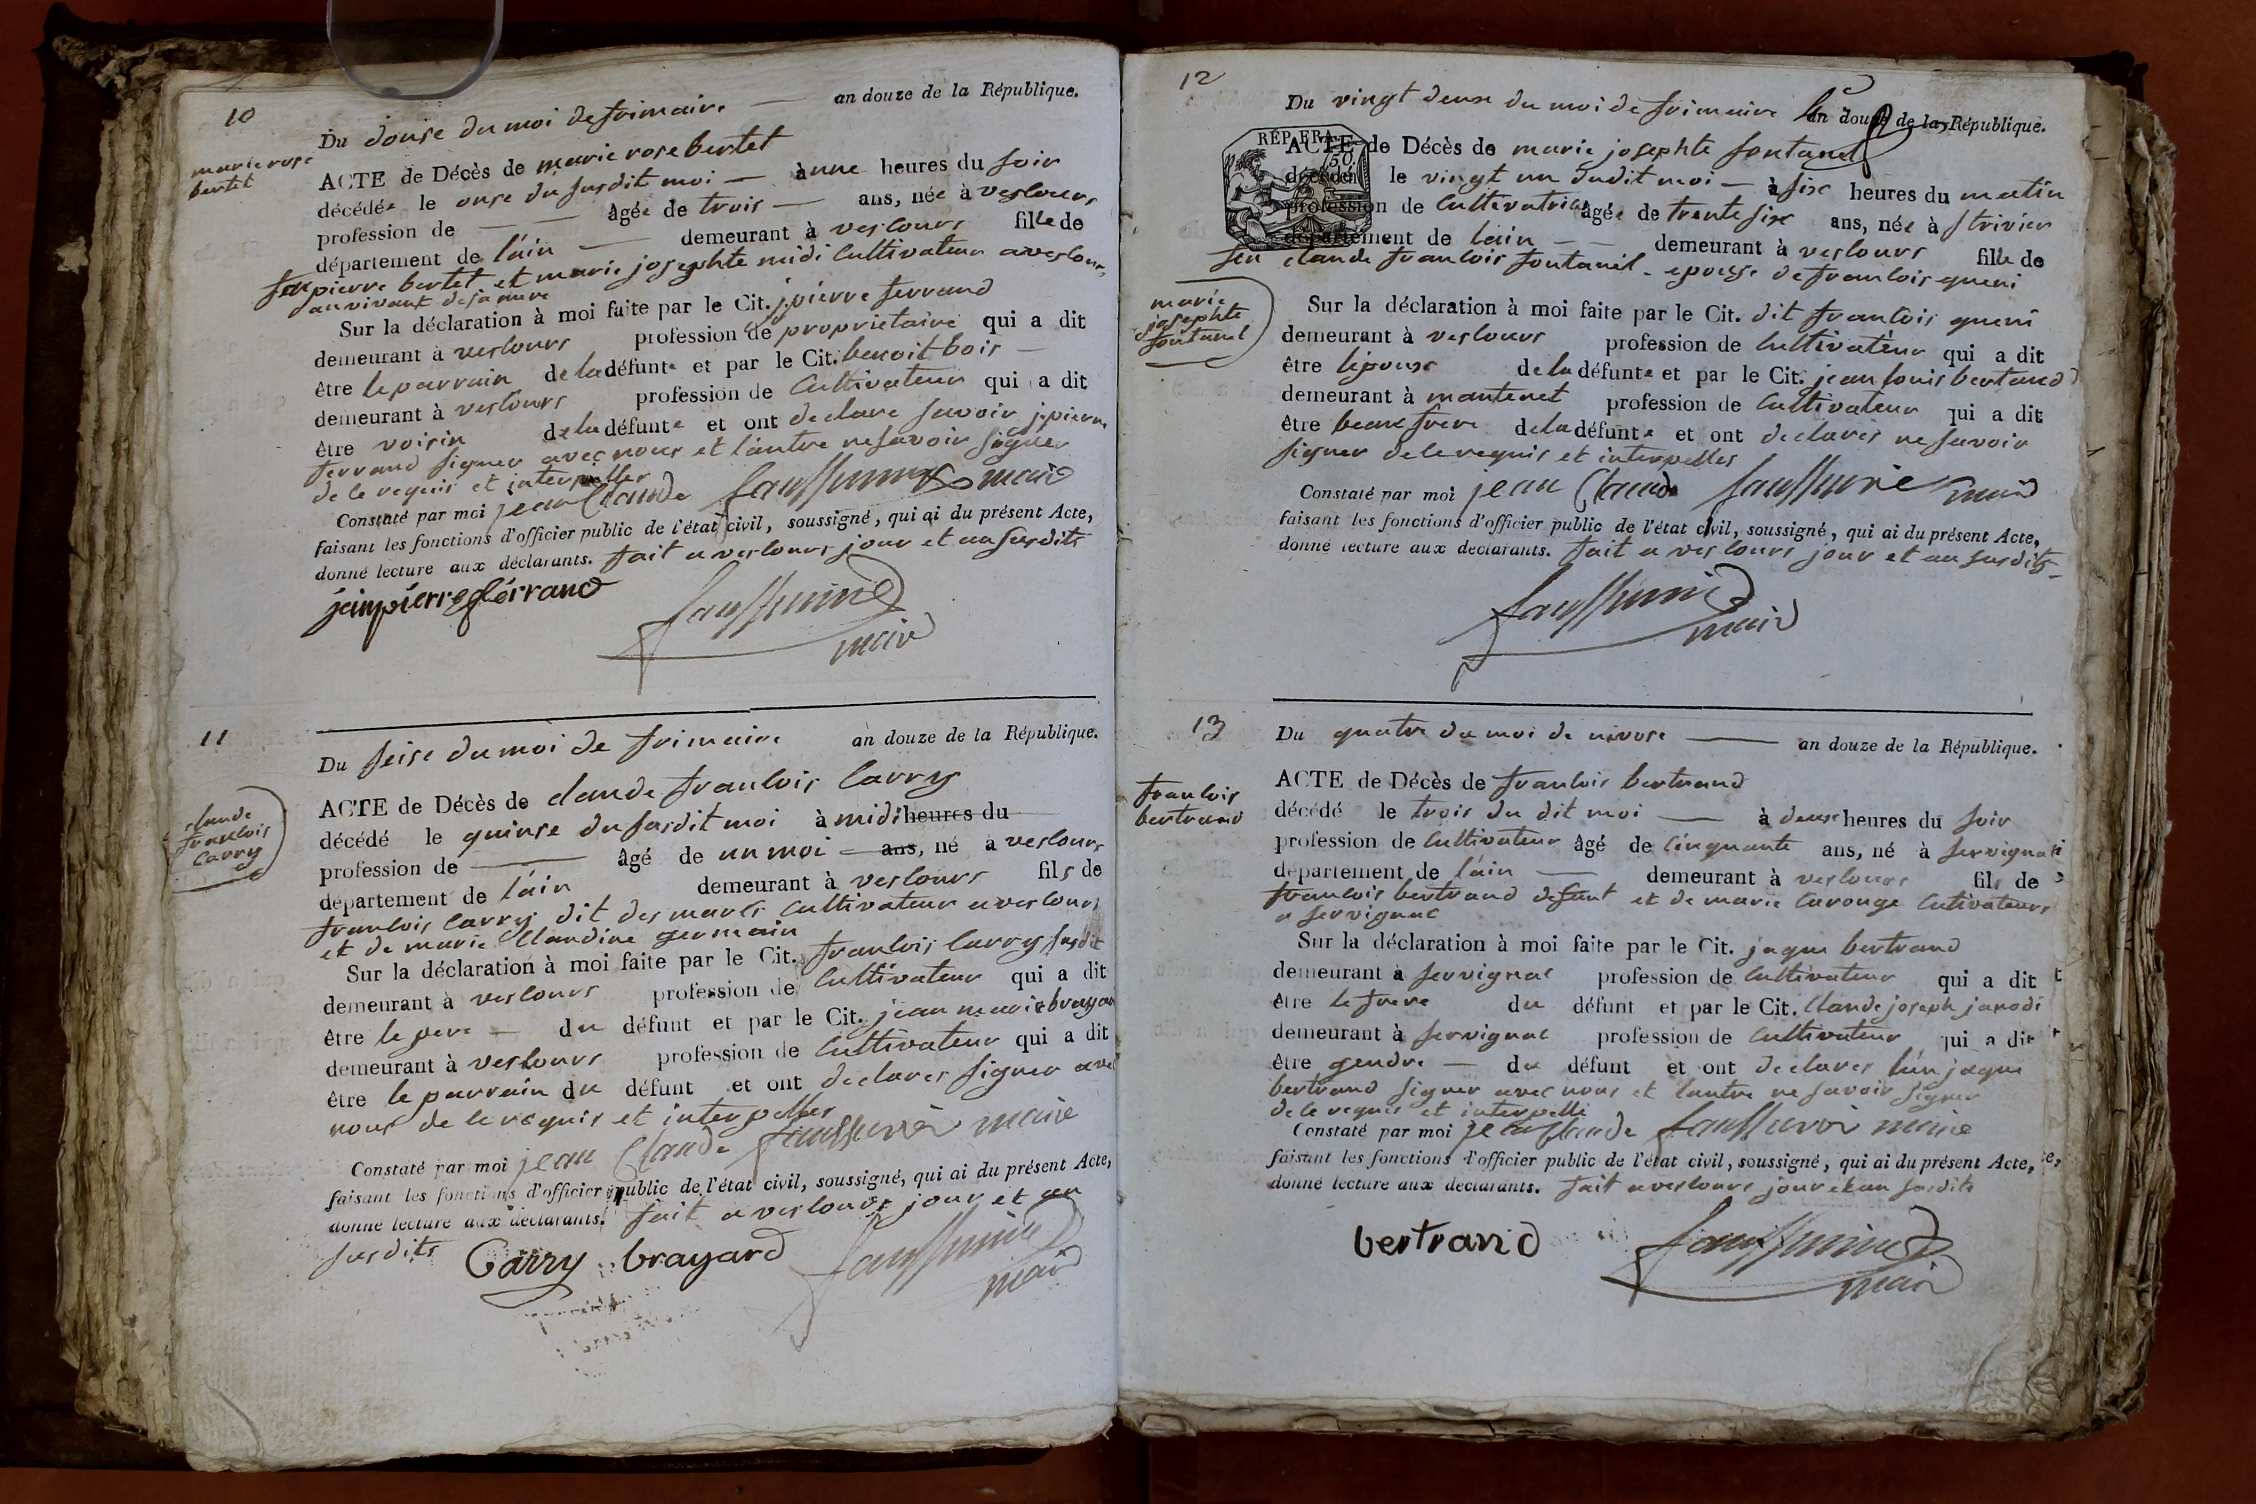 10
Du douse du moi de frimaire — an douze de la République.
marie rose
bertet
ACTE de Décès de marie rose bertet
décédée le onse du susdit moi — à une heures du soir
profession de — âgée de trois — ans, née à verlours
département de l'ain — demeurant à verlours fille de
feu pierre bertet et marie josephte midi Cultivateur a verlours
au vivant de sa mere
Sur la déclaration à moi faite par le Cit. j pierre ferrand
demeurant à verlours profession de proprietaire qui a dit
être le parrain de la défunte et par le Cit. benoit bois —
demeurant à verlours profession de Cultivateur qui a dit
être voisin de la défunte et ont declare savoir j pierre
ferrand signer avec nous et l'autre ne savoir signer
de le requis et interpeller
Constaté par moi jean Claude maire
faisant les fonctions d'officier public de l'état civil, soussigné, qui ai du présent Acte,
donné lecture aux déclarants. fait a verlours jour et an susdits
jeanpierre ferrand
maire
11
Du seise du moi de frimaire an douze de la République.
claude
franlois
Carry
ACTE de Décès de claude franlois Carry
décédé le quinse du susdit moi à midi heures du
profession de — âgé de un moi — ans, né à verlours
département de l'ain demeurant à verlours fils de
franlois Carry dit des marts Cultivateur a verlours
et de marie Claudine germain
Sur la déclaration à moi faite par le Cit. franlois Carry susdit
demeurant à verlours profession de Cultivateur qui a dit
être le pere — du défunt et par le Cit. jean marie brayard
demeurant à verlours profession de Cultivateur qui a dit
être le parrain du défunt et ont declarer signer avec
nous de le requis et interpeller
Constaté par moi jean Claude maire
faisant les fonctions d'officier public de l'état civil, soussigné, qui ai du présent Acte,
donné lecture aux déclarants. fait a verlours jour et an
susdits
Carry brayard
maire
12
Du vingt deux du moi de frimaire an douze de la République.
RÉP. FRA.
50
ACTE de Décès de marie josephte fontanel
décédée le vingt un dudit moi — à six heures du matin
profession de Cultivatrice âgée de trente six ans, née à strivier
département de l'ain — demeurant à verlours fille de
feu claude franlois fontanel - epouse de franlois queni
marie
josephte
fontanel
Sur la déclaration à moi faite par le Cit. dit franlois queni
demeurant à verlours profession de Cultivateur qui a dit
être lepoux de la défunte et par le Cit. jean louis bertand
demeurant à mantenet profession de Cultivateur qui a dit
être beaux frere de la défunte et ont declarer ne savoir
signer de le requis et interpeller
Constaté par moi jean Claude maire
faisant les fonctions d'officier public de l'état civil, soussigné, qui ai du présent Acte,
donné lecture aux déclarants. fait a verlours jour et an susdits -
maire
13
Du quatre du moi de nivose — an douze de la République.
franlois
bertrand
ACTE de Décès de franlois bertrand
décédé le trois du dit moi — à deux heures du soir
profession de Cultivateur âgé de Cinquante ans, né à servignat
département de l'ain — demeurant à verlours fils de
franlois bertrand defunt et de marie Carouge Cutivateurs
a servignac
Sur la déclaration à moi faite par le Cit. jaque bertrand
demeurant à servignac profession de Cultivateur qui a dit
être le frere du défunt et par le Cit. Claude joseph janodi
demeurant à servignac profession de Cultivateur qui a dit
être gendre — du défunt et ont declarer l'un jaque
bertrand signer avec nous et lautre ne savoir signer
de le requis et interpelli
Constaté par moi jean Claude maire
faisant les fonctions d'officier public de l'état civil, soussigné, qui ai du présent Acte,
donné lecture aux déclarants. fait a verlours jour et an susdits
bertrand
maire